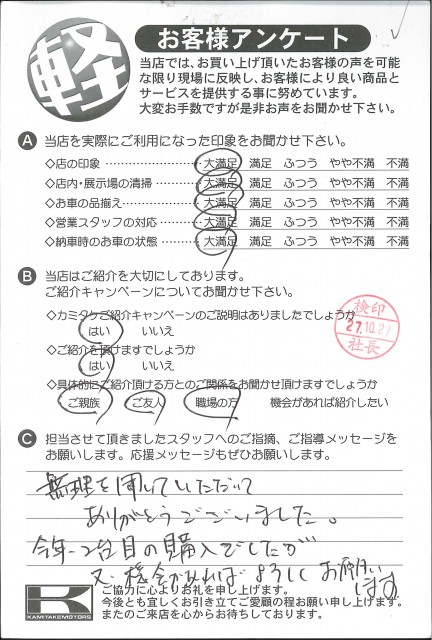 軽
お客様アンケート
当店では、お買い上げ頂いたお客様の声を可能
な限り現場に反映し、お客様により良い商品と
サービスを提供する事に努めています。
大変お手数ですが是非お声をお聞かせ下さい。
A 当店を実際にご利用になった印象をお聞かせ下さい。
◇店の印象 ……………… 大満足 満足 ふつう やや不満 不満
◇店内・展示場の清掃 ……… 大満足 満足 ふつう やや不満 不満
◇お車の品揃え …………… 大満足 満足 ふつう やや不満 不満
◇営業スタッフの対応 ……… 大満足 満足 ふつう やや不満 不満
◇納車時のお車の状態 ……… 大満足 満足 ふつう やや不満 不満
B 当店はご紹介を大切にしております。
ご紹介キャンペーンについてお聞かせ下さい。
◇カミタケご紹介キャンペーンのご説明はありましたでしょうか
はい いいえ
◇ご紹介を頂けますでしょうか
はい いいえ
◇具体的にご紹介頂ける方とのご関係をお聞かせ頂けますでしょうか
ご親族 ご友人 職場の方 機会があれば紹介したい
検印
27.10.27
社長
C 担当させて頂きましたスタッフへのご指摘、ご指導メッセージを
お願いします。応援メッセージもぜひお願いします。
無理を聞いていただいて
ありがとうございました。
今年二台目の購入でしたが
又、機会があればよろしくお願い
します
K
KAMITAKEMOTORS
ご協力に心よりお礼を申し上げます。
今後とも宜しくお引き立てご愛顧の程お願い申し上げます。
またのご来店を心からお待ちしております。